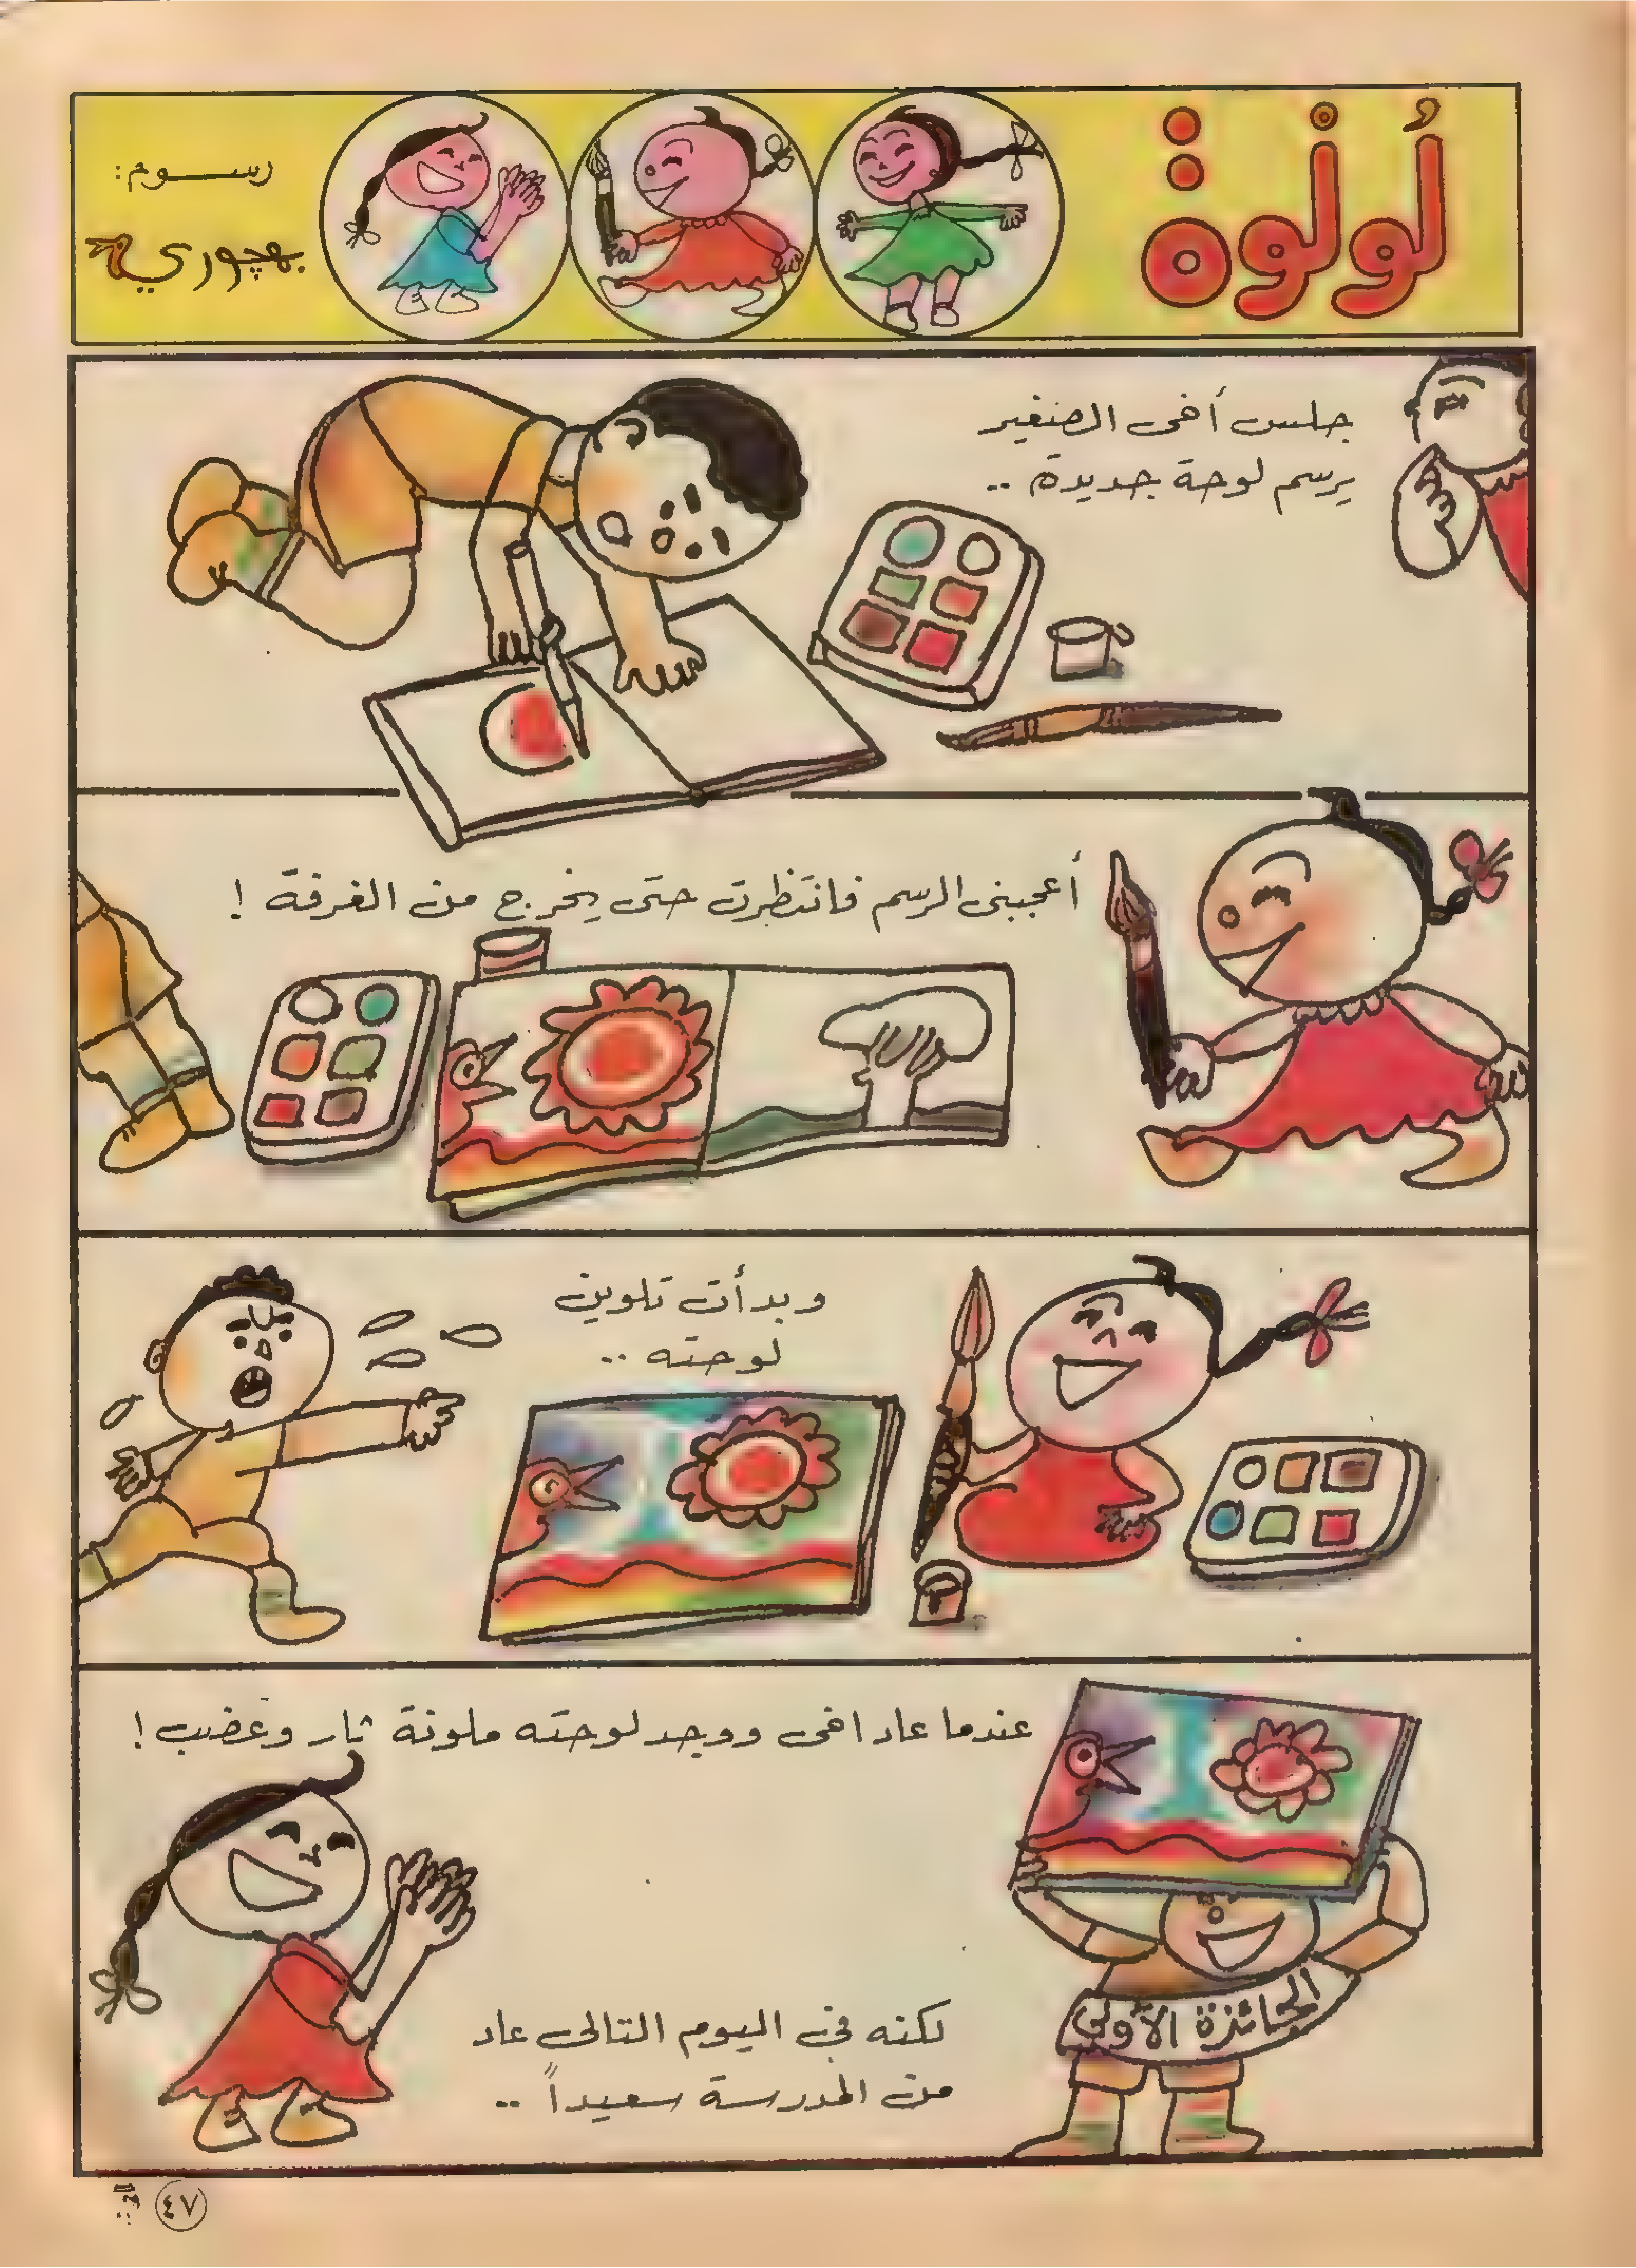 لُولْوة
رسوم:
بهجوري
جلس أخى الصغير
يرسم لوحة جديدة ..
أعجبنى الرسم فانتظرت حتى يخرج من الغرفة !
وبدأت تلوين
لوحته ..
عندما عاد اخى ووجد لوحته ملونة ثار وغضب !
لكنه فى اليوم التالى عاد
من المدرسة سعيداً ..
الجائزة الأولى
٤٧